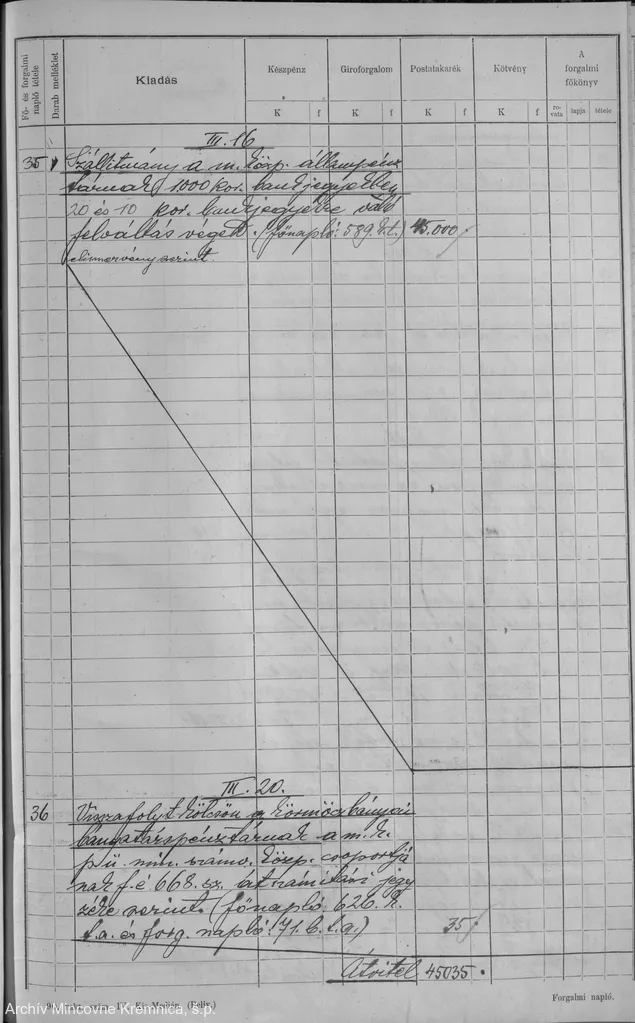 Fő- és forgalmi napló tétele
Darab melléklet
Kiadás
Készpénz
Giroforgalom
Postatakarék
Kötvény
A forgalmi főkönyv
K f K f K f K f
ro-vata lapja tétele
III. 16
35 1 Szállitmány a m. közp. állampénz
tárnak (1000 kor. bankjegyekben
20 és 10 kor. bankjegyekre való
felváltás végett. (főnapló: 589. k.t.) 45.000
elismervény szerint.
III. 20.
36 Visszafolyt kölcsön a körmöczbányai
bányatárspénztárnak a m. k.
pü. min. számv. közp. csoportjá
nak f. é 668. sz. átszámitási jegy
zéke szerint. (főnapló: 626. k.
t.a. és forg. napló: 71. b. t. a.) 35
Átvitel 45035.
Forgalmi napló.
Archív Mincovne Kremnica, š.p.